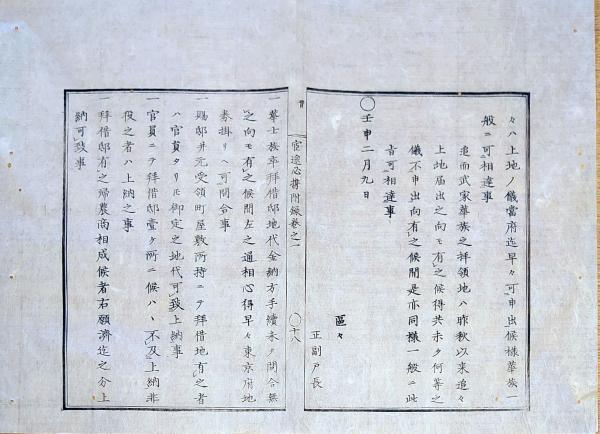 々ハ上地ノ儀當府迄早々可申出候様華族一
般ニ可相達事
追而武家華族之拝領地ハ昨秋以来追々
上地届出之向モ有之候得共未タ何等之
儀不申出向有之候間是亦同様一般ニ此
旨可相達事
〇壬申二月九日
區々
正副戸長
官途必携附録巻之一
〇十八
一華士族卒拝借邸地代金納方手續未タ問合無
之向モ有之候間左之通相心得早々東京府地
券掛リヘ可問合事
一賜邸并元受領町屋敷所持ニテ拝借地有之者
ハ官員タリモ御定之地代可致上納事
一官員ニテ拝借邸壹ケ所ニ候ハヽ不及上納非
役之者ハ上納之事
一拝借邸有之帰農商相成候者右願濟迄之分上
納可致事